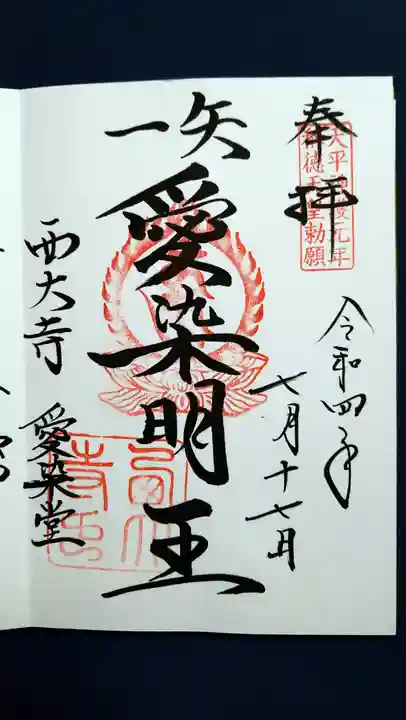 奉拝
天平神護元年
称徳天皇勅願
令和四年
七月十七日
一矢
愛染明王
西大寺 愛染堂